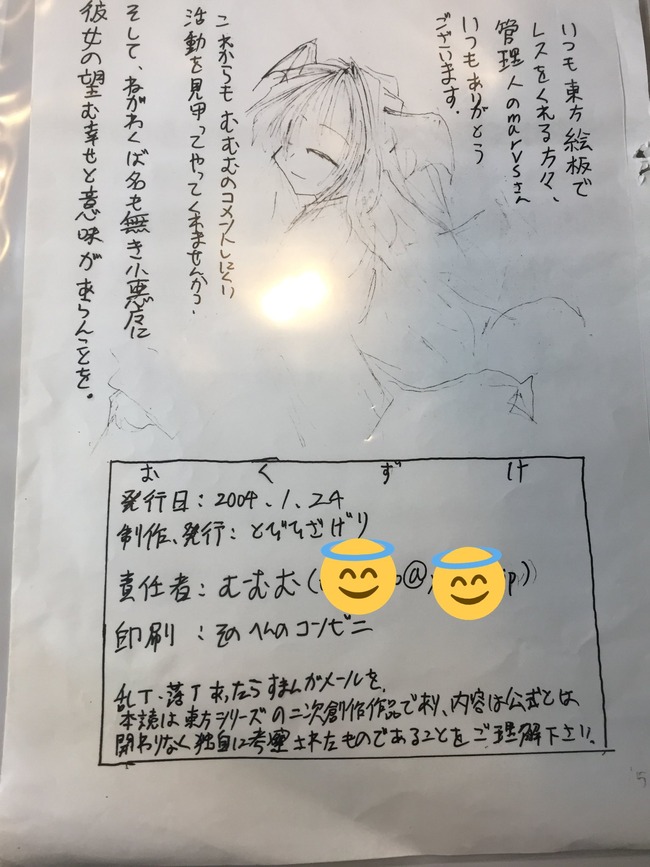 いつも東方絵板で
レスをくれる方々、
管理人のmarvsさん
いつもありがとう
ございます。
これからもむむむのコメントしにくい
活動を見守ってやってくれませんか?
そして、ねがわくば名も無き小悪魔に
彼女の望む幸せと意味があらんことを。
おくづけ
発行日:2004.1.24
制作、発行:とびひざげり
責任者:むーむむ(
印刷:そのへんのコンビニ
乱丁・落丁あったらすまんがメールを。
本誌は東方シリーズの二次創作作品であり、内容は公式とは
関わりなく独自に考察されたものであることをご理解下さい。